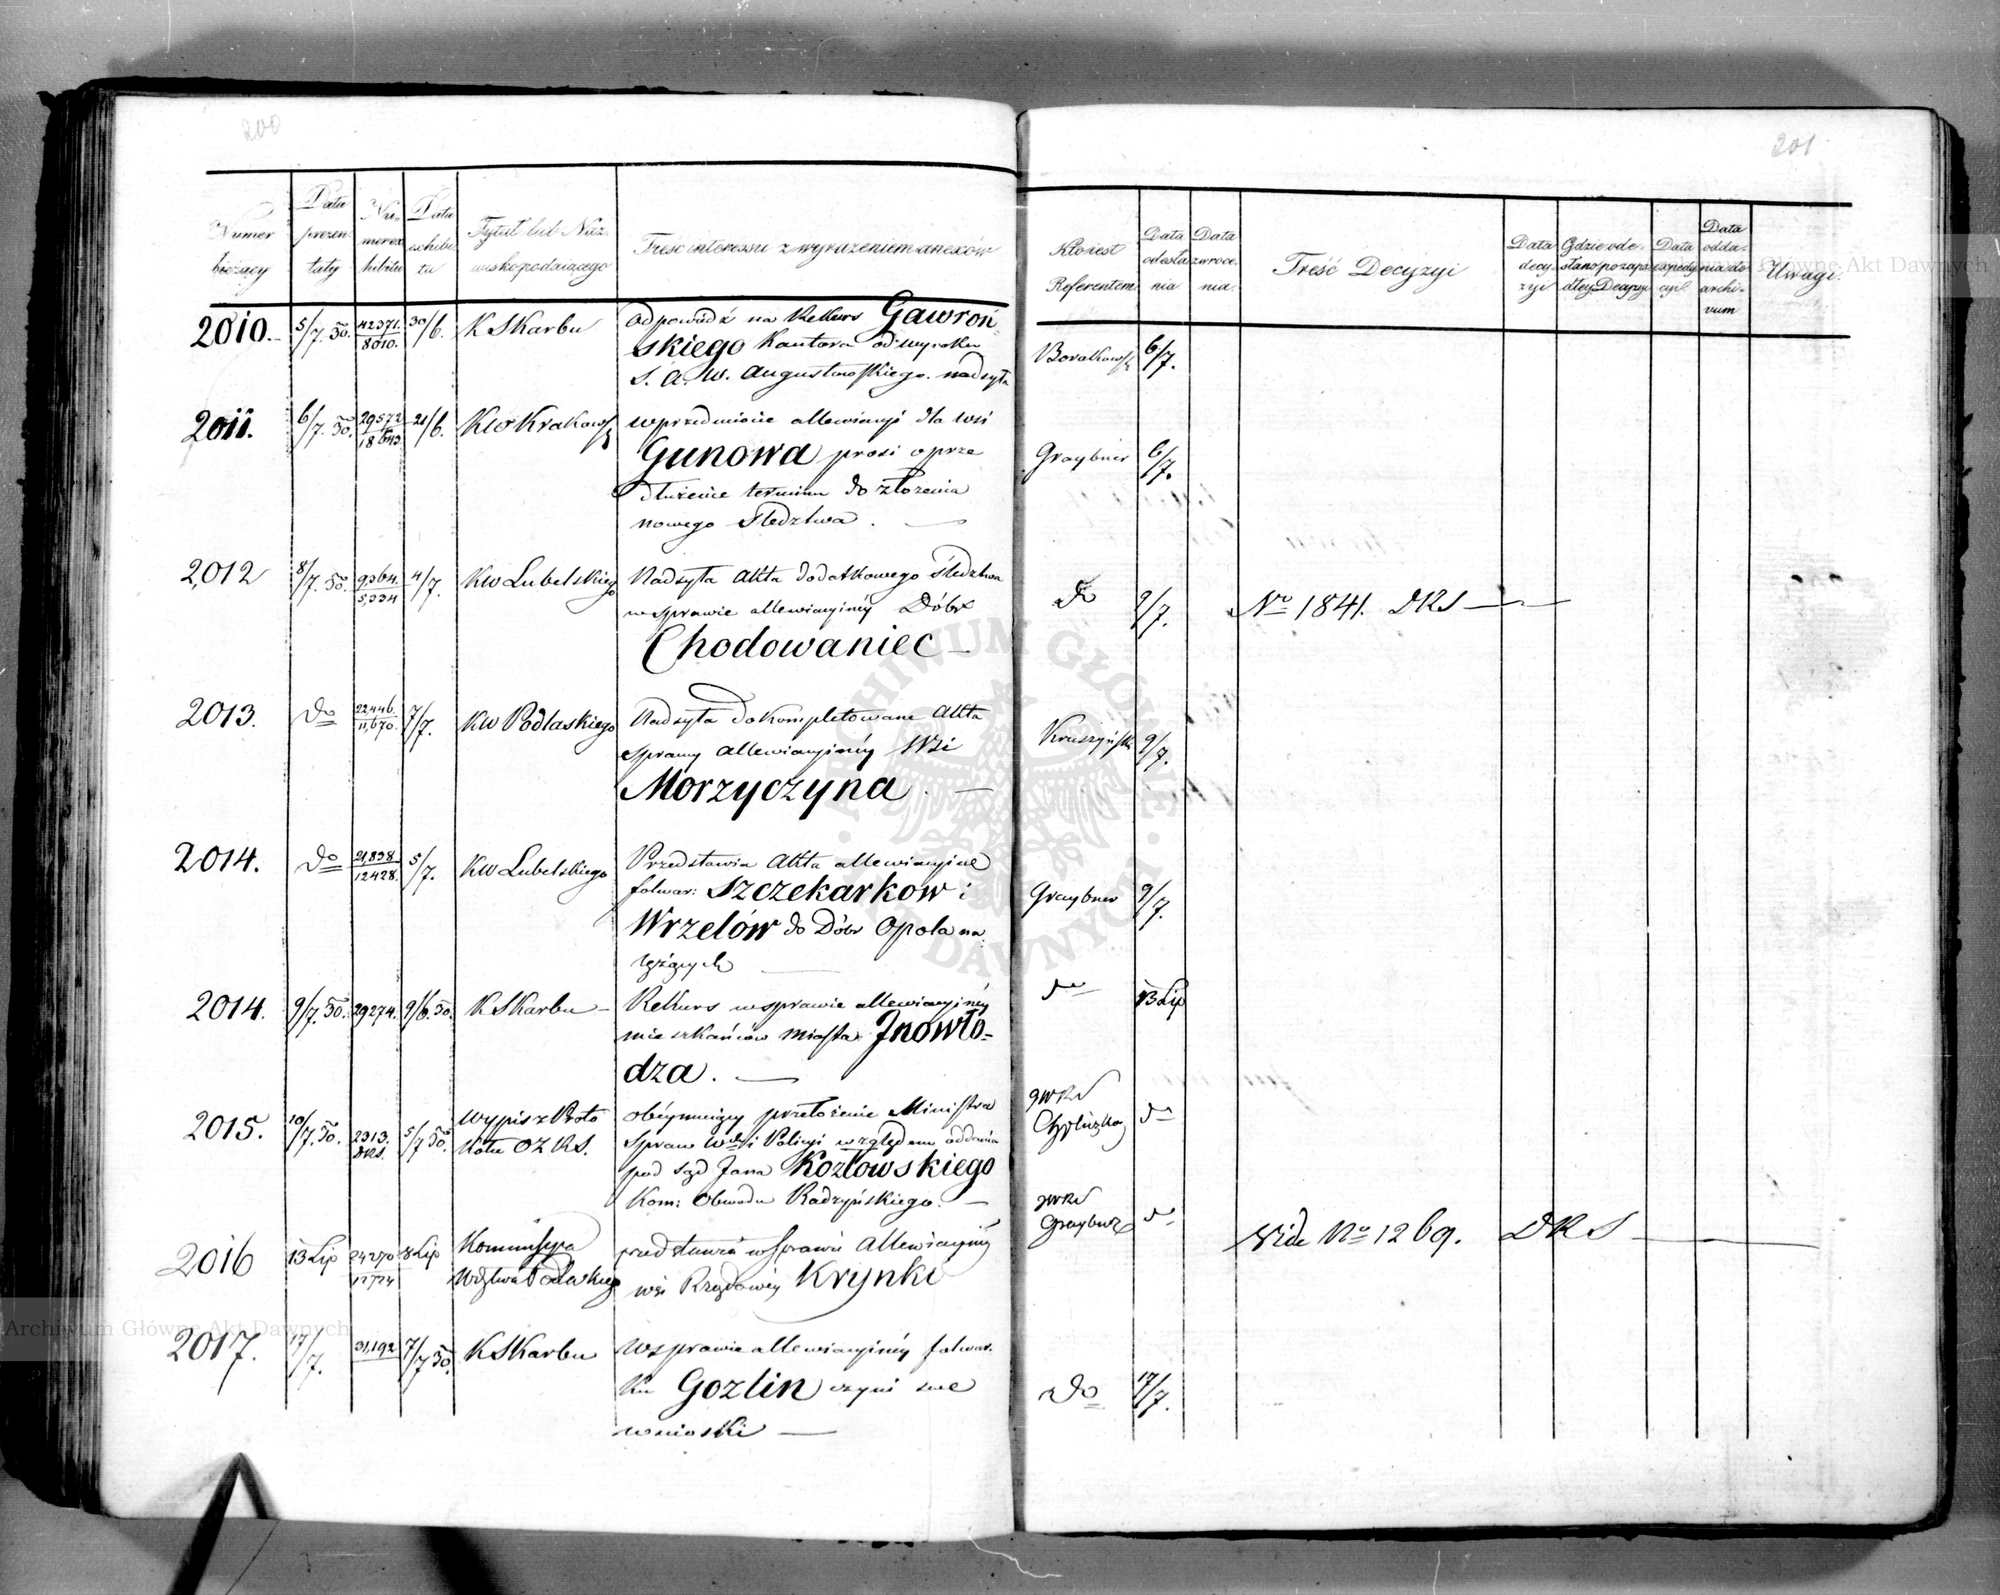 200
Numer bieżący
Data prezentaty
Numer exhibitu
Data exhibitu
Tytuł lub Nazwisko podaiącego
Treść interessu z wyrażeniem anexów
2010. 5/7. 30. 42371. 8010. 30/6. K Skarbu
Odpowiedź na Rekurs Gawroń-
skiego Kantora od wyroku
S. A. W. Augustowskiego nadsyła
2011. 6/7. 30. 29572 21/6. KW Krakows
w przedmiocie allewiacyi dla wsi
Gunowa prosi o prze
dłużenie terminu do złożenia
nowego Śledztwa.
2,012 8/7. 30. 9364. 5,334 4/7. KW Lubelskiego
Nadsyła Akta dodatkowego śledztwa
w sprawie allewiacyjnéy Dóbr
Chodowaniec
2013. do 22446. 11,670. 7/7. KW Podlaskiego
Nadsyła do Kompletowane Akta
sprawy allewiacyjnéy Wsi
Morzyczyna.
2014. do 21,838. 12428. 5/7. KW Lubelskiego
Przedstawia Akta allewiacyjne
folwar: Szczekarkow i
Wrzelów do Dóbr Opola na
leżących
2014. 9/7. 30. 29274. 9/6. 30. K Skarbu
Rekurs w sprawie allewiacyjnéy
mieszkańców miasta Jnowło-
dza.
2015. 10/7. 30. 2313. DKS. 5/7 30. Wypis z Proto
kołu OZ KS.
obéymuiący przełożenie Ministra
Spraw Wch i Policyi względem oddania
pod sąd Jana Kozłowskiego
Kom: Obwodu Radzyńskiego.
2016 13 Lip 24270 12724 8 Lip Kommissya
Wdztwa Podlaskieg
przedstawia w Sprawie Allewiacyjnéy
wsi Rządowéy Krynki
2017. 17/7. 31,192 7/7 30. K Skarbu
W sprawie allewiacyjnéy folwar.
ku Gozlin czyni swe
wnioski
201
Kto iest Referentem
Data odesłania
Data zwrócenia
Treść Decyzyi
Data decyzyi
Gdzie odesłano po zapadłey Decyzyi
Data expedycyi
Data oddania do archivum
Uwagi.
6/7.
Graybner 6/7.
do 9/7. No 1841. DKS
Kruszyński 9/7.
Graybner 9/7.
do 13 Lip
do
Graybner do Vide No 1269. DKS
Do 17/7.
Archiwum Główne Akt Dawnych
Archiwum Główne Akt Dawnych
ARCHIWUM GŁÓWNE AKT DAWNYCH